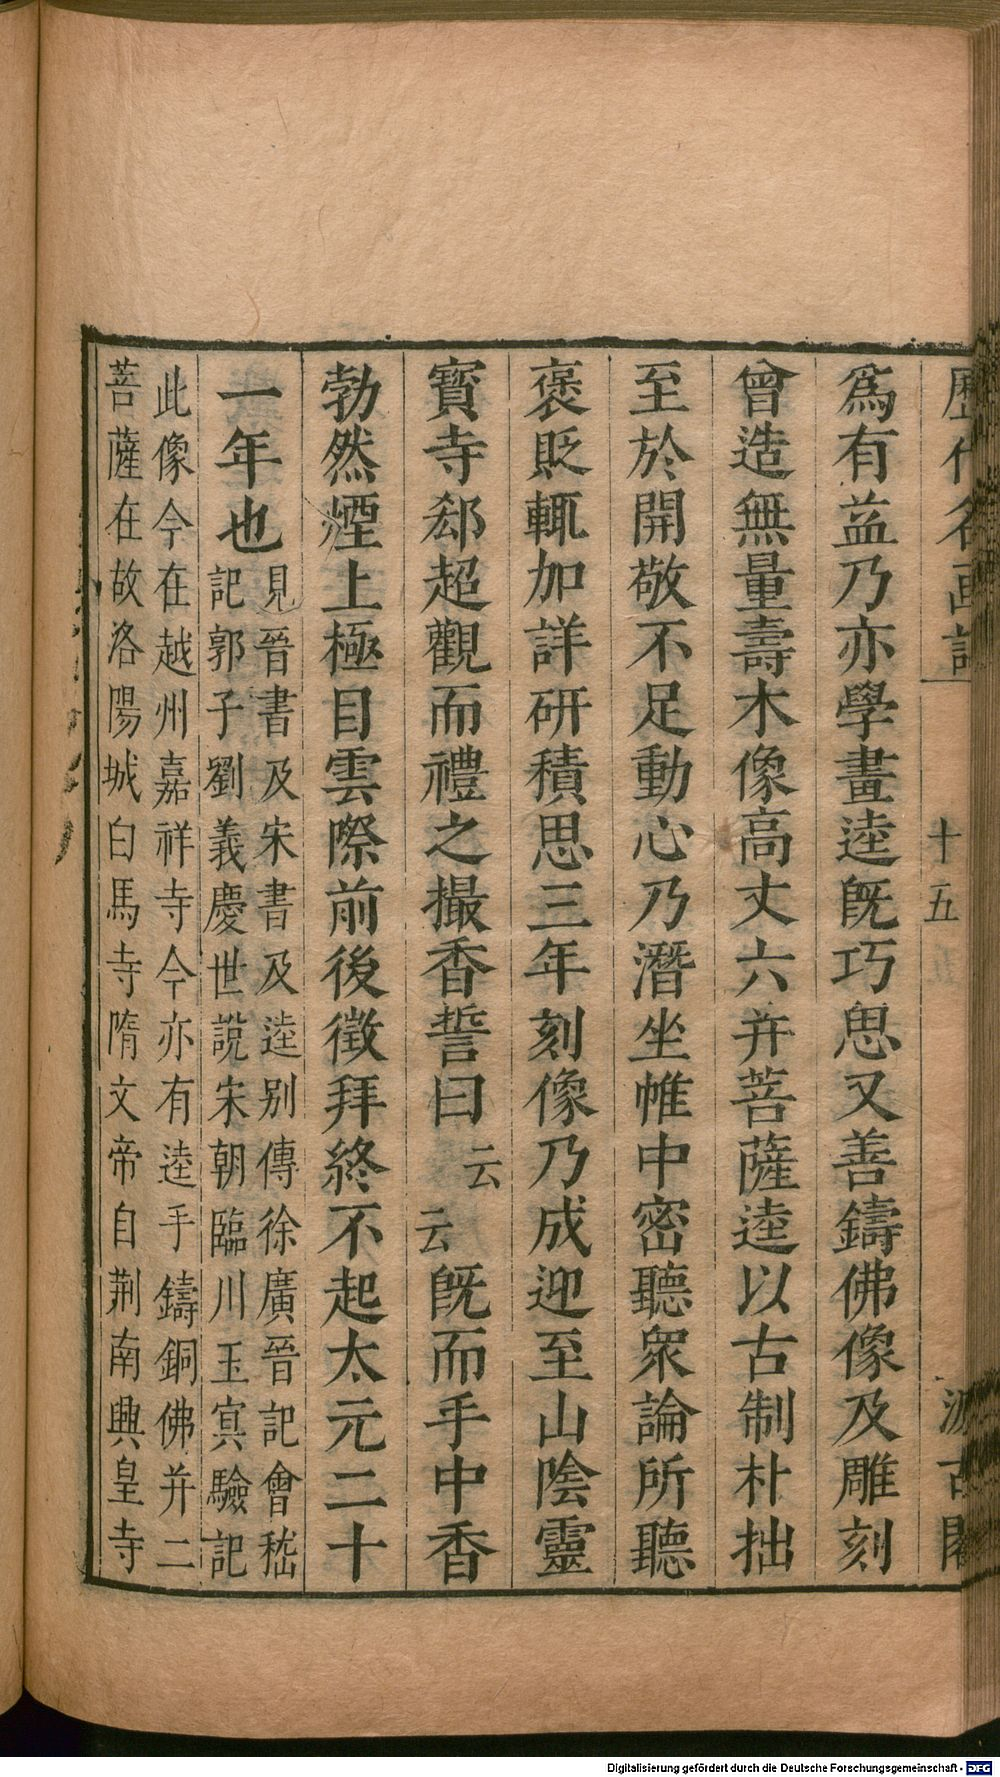 歷代名画記
十五
汲古閣
爲有益乃亦學畫逵旣巧思又善鑄佛像及雕刻
曾造無量壽木像高丈六并菩薩逵以古制朴拙
至於開敬不足動心乃潛坐帷中密聽衆論所聽
褒貶輒加詳研積思三年刻像乃成迎至山陰靈
寳寺郄超觀而禮之撮香誓曰云云旣而手中香
勃然煙上極目雲際前後徵拜終不起太元二十
一年也
見晉書及宋書及逵别傳徐廣晉記會嵇
記郭子劉義慶世說宋朝臨川玉㝠驗記
此像今在越州嘉祥寺今亦有逵手鑄銅佛并二
菩薩在故洛陽城白馬寺隋文帝自荆南興皇寺
Digitalisierung gefördert durch die Deutsche Forschungsgemeinschaft - DFG